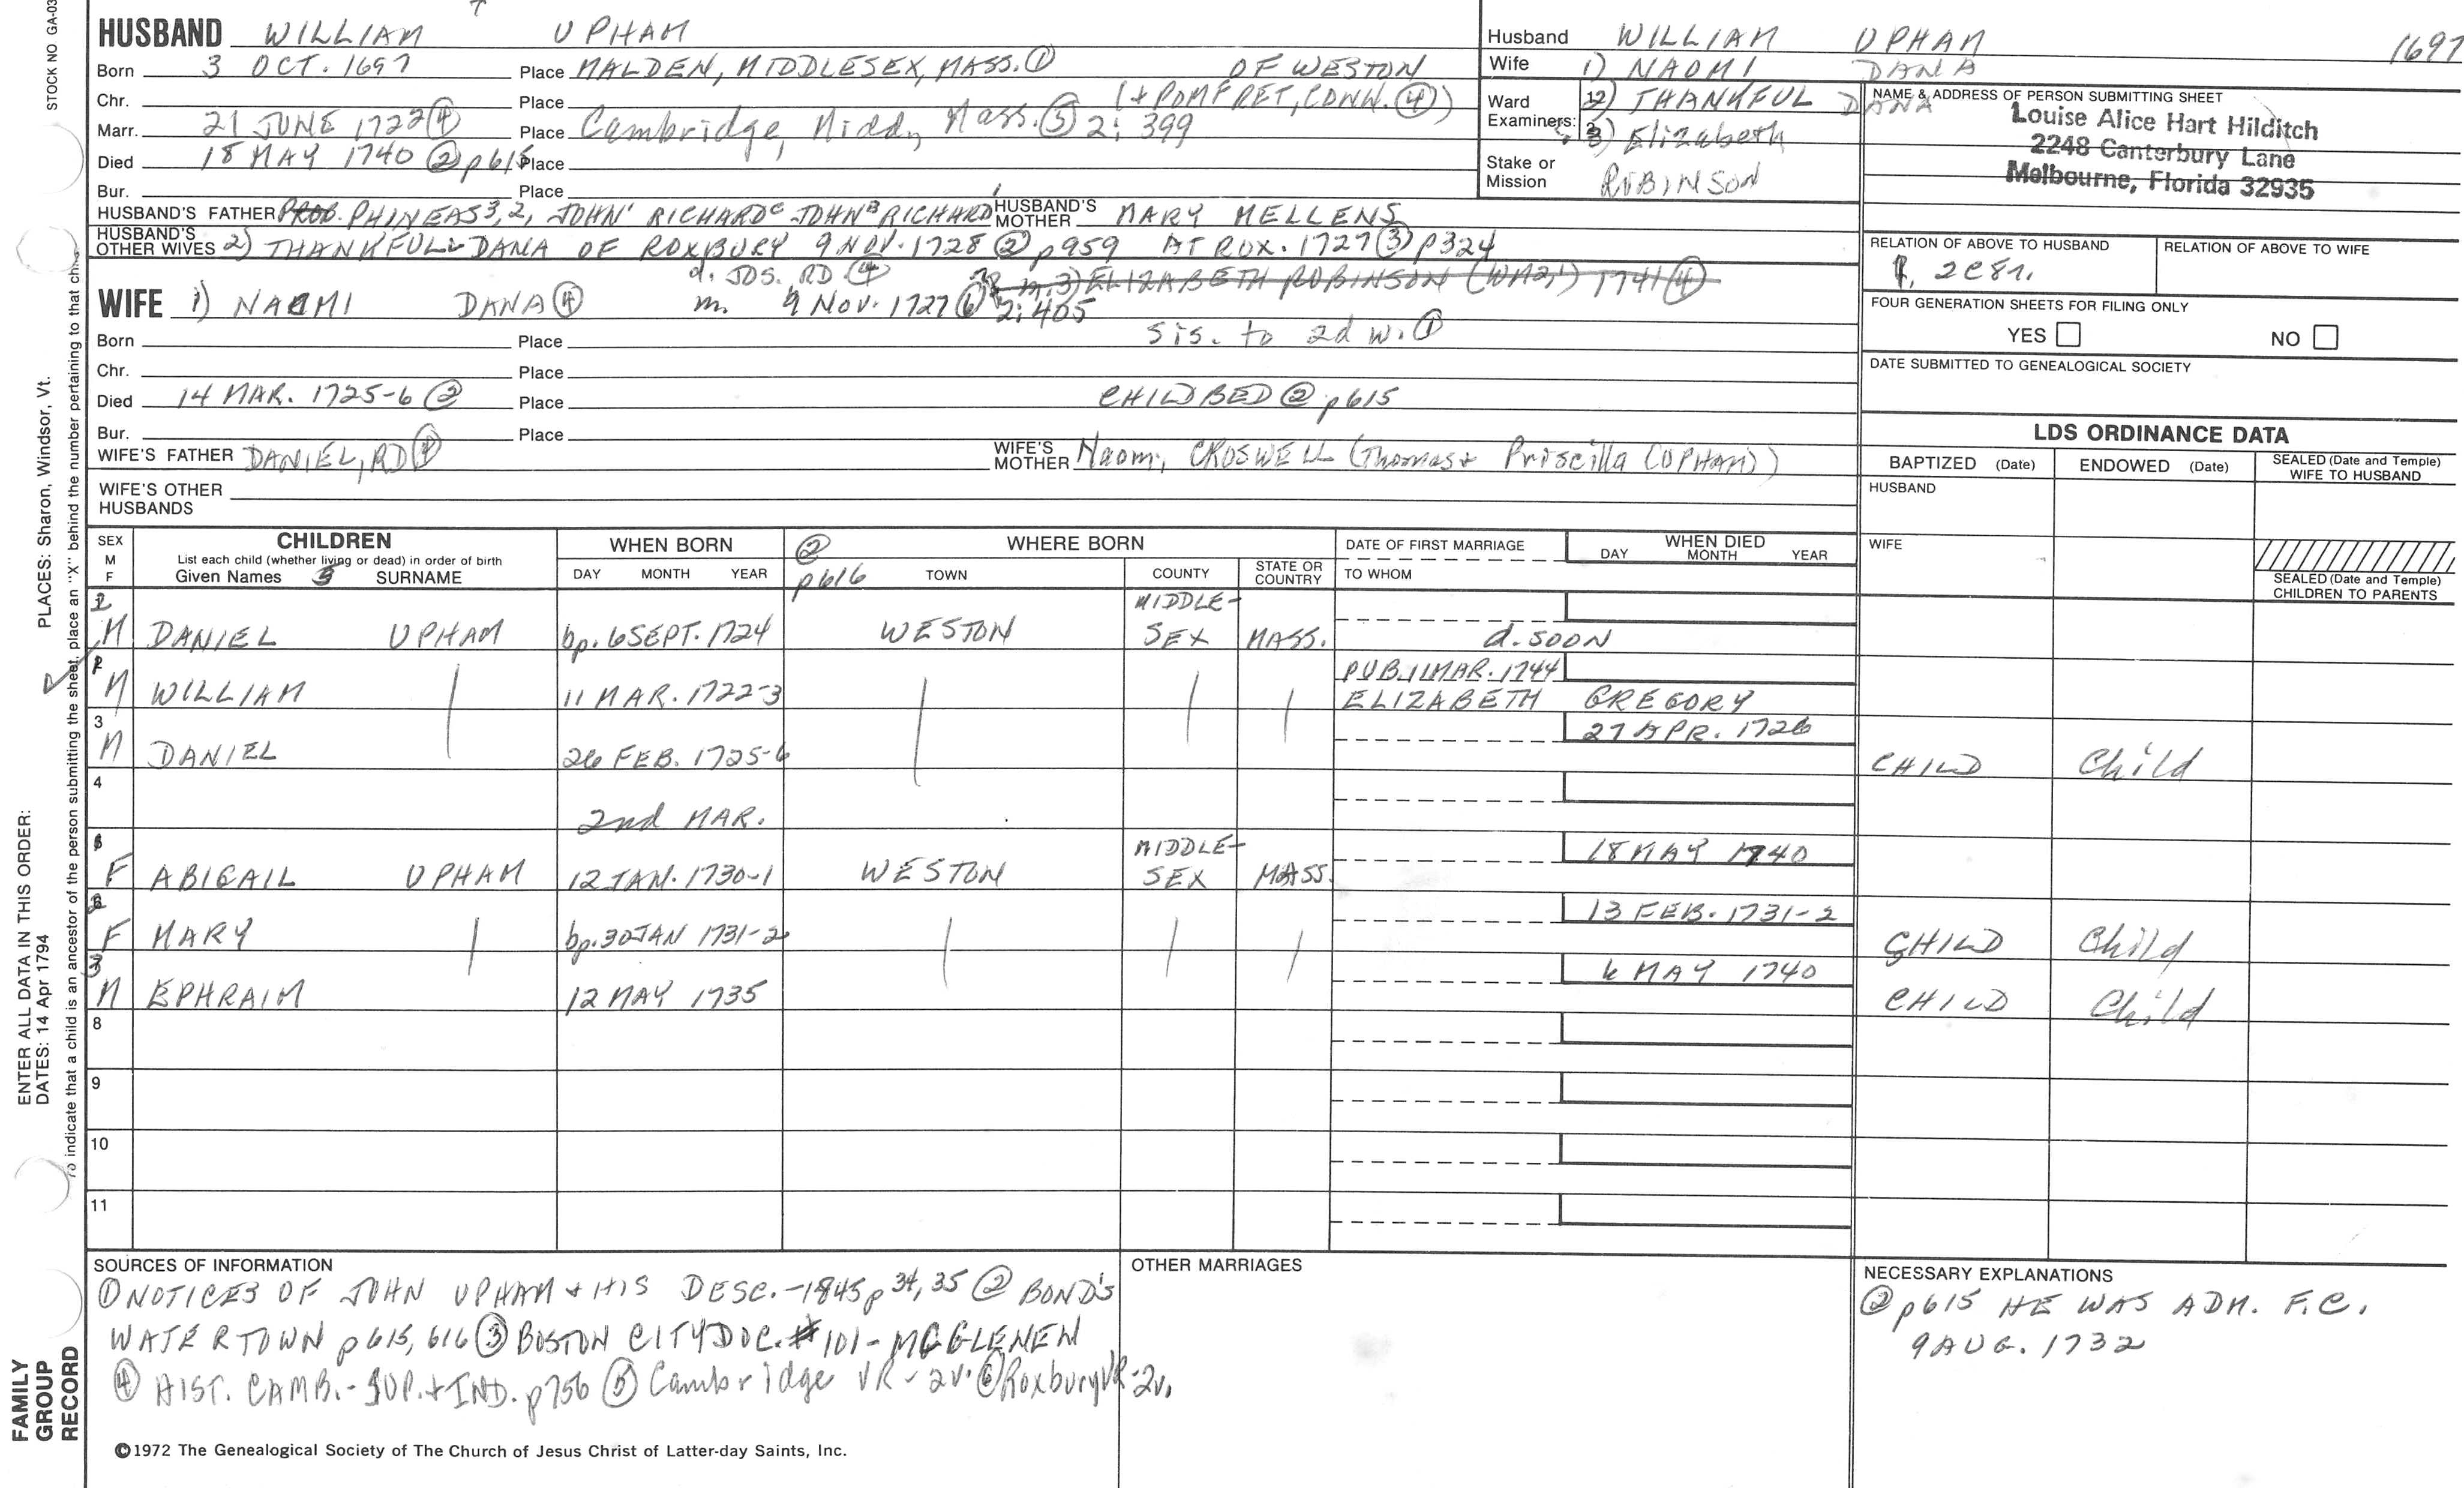 STOCK NO GA-03
HUSBAND WILLIAM UPHAM
Born 3 OCT. 1697 Place MALDEN, MIDDLESEX, MASS. ① OF WESTON
Chr. Place (+ POMFRET, CONN. ④)
Marr. 21 JUNE 1722 ④ Place Cambridge, Midd, Mass. ⑤ 2: 399
Died 18 MAY 1740 ② p615 Place
Bur. Place
HUSBAND'S FATHER PROB. PHINEAS 3, 2, JOHN' RICHARD JOHN RICHARD HUSBAND'S MOTHER MARY MELLENS
HUSBAND'S OTHER WIVES 2) THANKFUL DANA OF ROXBURY 9 NOV. 1728 ② p959 AT ROX. 1727 ③ p324
d. JOS. RD ④ m. 3) ELIZABETH ROBINSON (WM2,1) 1741 ④
WIFE 1) NAOMI DANA ④ m. 9 NOV. 1727 ⑥ 2: 405
sis. to 2d w. ①
Born Place
Chr. Place
Died 14 MAR. 1725-6 ② Place CHILDBED ② p615
Bur. Place
WIFE'S FATHER DANIEL, RD ④ WIFE'S MOTHER Naomi, CROSWELL (Thomas + Priscilla (UPHAM))
WIFE'S OTHER HUSBANDS
Husband WILLIAM UPHAM 1697
Wife 1) NAOMI DANA
Ward Examiners: 2) THANKFUL DANA
3) Elizabeth
Stake or Mission ROBINSON
NAME & ADDRESS OF PERSON SUBMITTING SHEET
Louise Alice Hart Hilditch
2248 Canterbury Lane
Melbourne, Florida 32935
RELATION OF ABOVE TO HUSBAND RELATION OF ABOVE TO WIFE
2C8r.
FOUR GENERATION SHEETS FOR FILING ONLY
YES NO
DATE SUBMITTED TO GENEALOGICAL SOCIETY
LDS ORDINANCE DATA
BAPTIZED (Date) ENDOWED (Date) SEALED (Date and Temple) WIFE TO HUSBAND
HUSBAND
WIFE
SEALED (Date and Temple) CHILDREN TO PARENTS
SEX M F CHILDREN WHEN BORN ② p616 WHERE BORN DATE OF FIRST MARRIAGE WHEN DIED
List each child (whether living or dead) in order of birth
Given Names SURNAME DAY MONTH YEAR TOWN COUNTY STATE OR COUNTRY TO WHOM DAY MONTH YEAR
2 M DANIEL UPHAM bp. 6 SEPT. 1724 WESTON MIDDLE-SEX MASS. d. SOON
1 M WILLIAM 11 MAR. 1722-3 PUB. 11 MAR. 1744 ELIZABETH GREGORY
3 M DANIEL 26 FEB. 1725-6 27 APR. 1726 CHILD Child
4 2nd MAR.
1 F ABIGAIL UPHAM 12 JAN. 1730-1 WESTON MIDDLE-SEX MASS. 18 MAY 1740
2 F MARY bp. 30 JAN 1731-2 13 FEB. 1731-2 CHILD Child
3 M EPHRAIM 12 MAY 1735 6 MAY 1740 CHILD Child
8
9
10
11
SOURCES OF INFORMATION
① NOTICES OF JOHN UPHAM + HIS DESC.-1845 p 34, 35 ② BOND'S
WATERTOWN p615, 616 ③ BOSTON CITY DOC. #101 - MCGLENEN
④ HIST. CAMB. - SUP. + IND. p756 ⑤ Cambridge VR - 2v. ⑥ Roxbury VR - 2v.
OTHER MARRIAGES
NECESSARY EXPLANATIONS
② p615 HE WAS ADM. F.C.
9 AUG. 1732
©1972 The Genealogical Society of The Church of Jesus Christ of Latter-day Saints, Inc.
PLACES: Sharon, Windsor, Vt.
ENTER ALL DATA IN THIS ORDER:
DATES: 14 Apr 1794
To indicate that a child is an ancestor of the person submitting the sheet, place an "X" behind the number pertaining to that chi
FAMILY GROUP RECORD